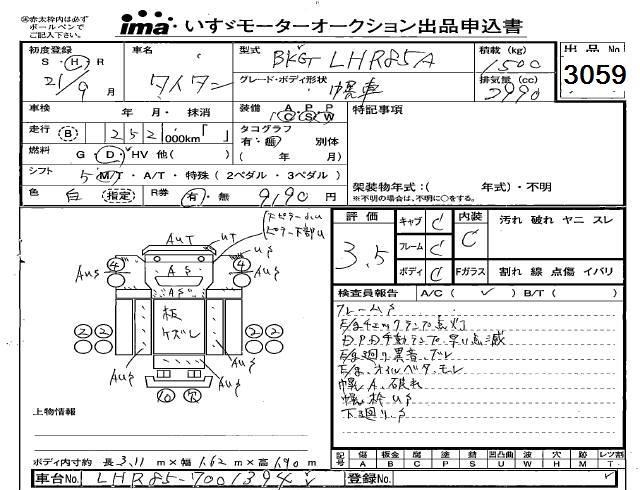 ㊟赤太枠内は必ず
ボールペンで
ご記入下さい。
ima いすゞモーターオークション出品申込書
初度登録 車名 型式 BKG LHR85A 積載(kg) 1500 出品No
S・H・R タイタン グレード・ボディ形状 排気量(cc) 3059
21/9 月 幌車 2990
車検 年 月・抹消 装備 A・P・P C S W 特記事項
走行 B 252 000km「 」 タコグラフ
有・無 別体
燃料 G・D・HV 他( ) ( 年 月)
シフト 5 M/T・A/T・特殊(2ペダル・3ペダル)
架装物年式:( 年式)・不明
色 白 指定 R券 有・無 9190 円 ※不明の場合は、不明に○をする。
評価 3.5 キャブ C 内装 C 汚れ 破れ ヤニ スレ
フレーム C
ボディ C Fガラス 割れ 線 点傷 イバリ
検査員報告 A/C( ✓ ) B/T( )
フレームS
E/gチェックランプ点灯
DPD手動ランプ早い点滅
E/g廻り異音、ブレ
E/g、オイルベタ、モレ
幌A、破れ
幌枠US
下廻りS
AUT UT US
4 AS 4
AUS AS AUS
板
ケズレ
2 2 2 2
AUS AUS
上物情報
記号 傷 板金 腐 塗 錆 凹 凸凹曲 波 穴 時 レンズ割
A B C P S U W H M
ボディ内寸約 長 3.11 m×幅 1.62 m×高 1.90 m
車台No. LHR85-7001394 登録No.